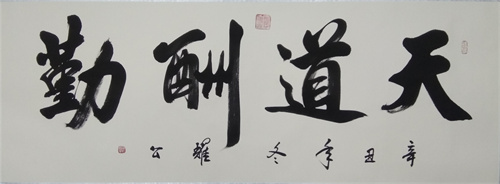 天道酬勤
辛丑年冬耀公